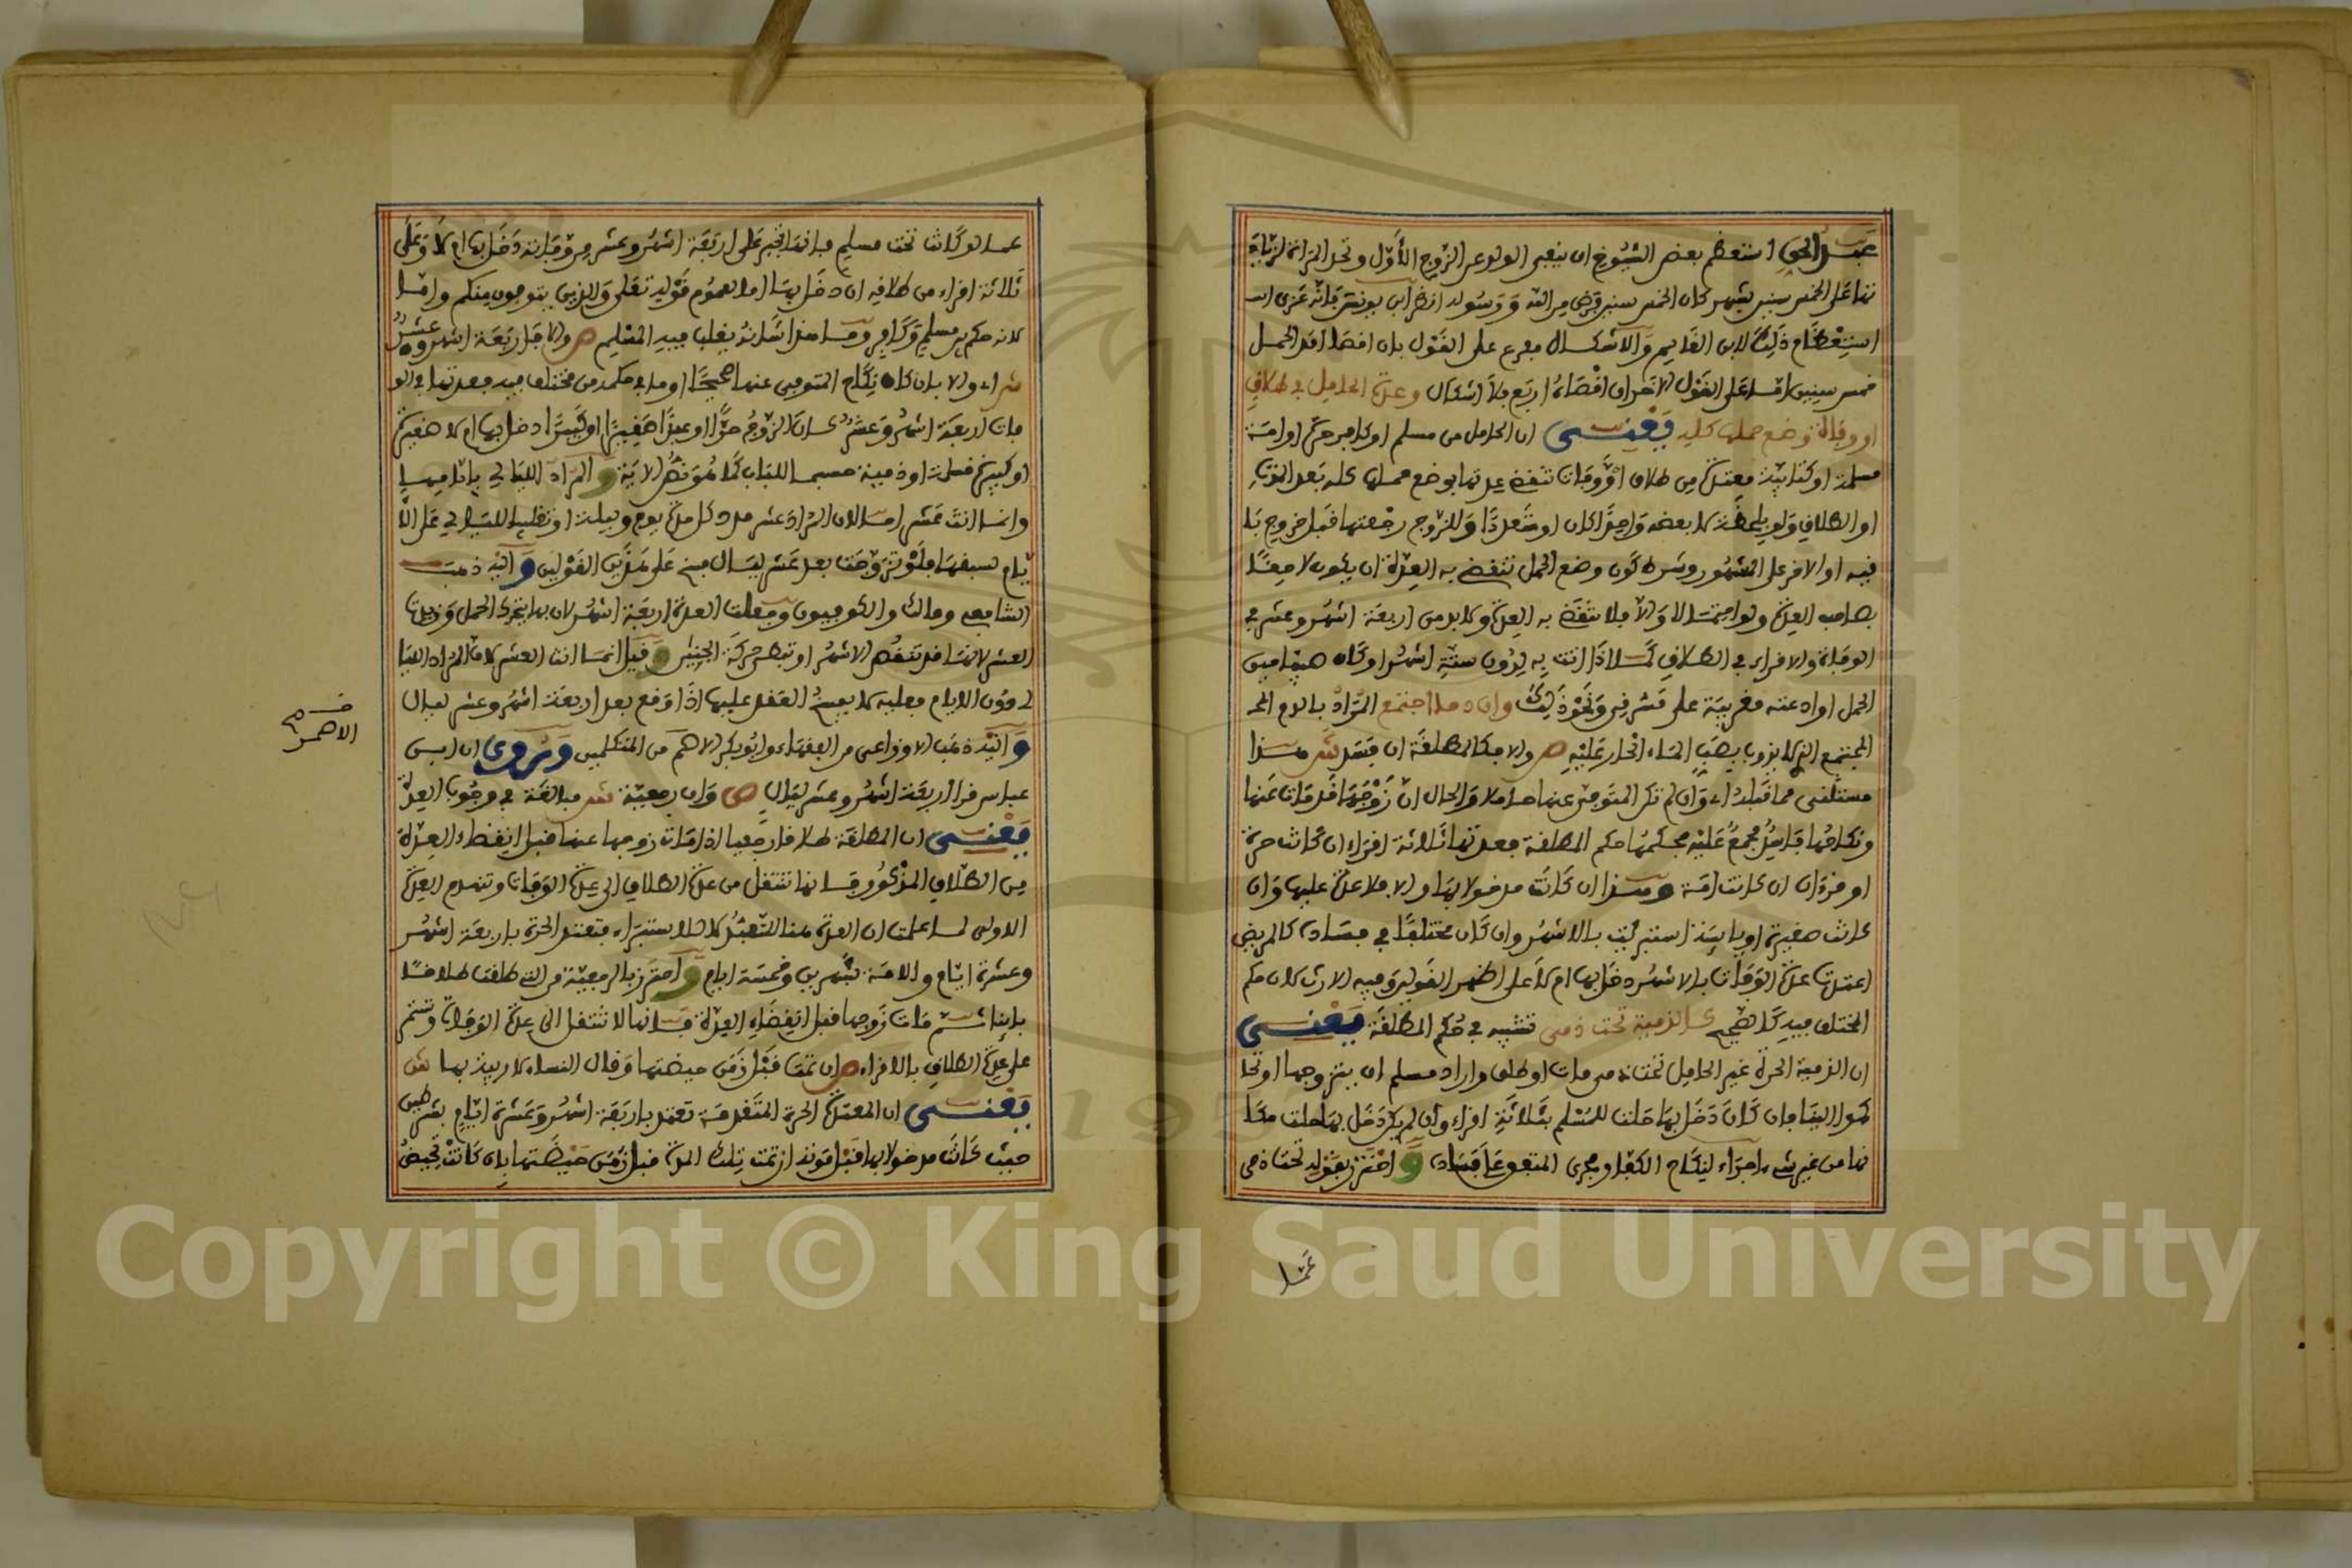 عبد الحق استعظم بعض الشيوخ ان ينفى الولد عن الزوج الأول وتحد المرأة لزيادة
نها على الخمس سنين بشهر كان الخمس سنين فرض من الله ورسوله انظر ابن يونس فانه عزى
استعظام ذلك لابن القابسى والاشكال مفرع على القول بان اقصا امد الحمل
خمس سنين اما على القول الآخر ان اقصاه اربع فلا اشكال وعدة الحامل في طلاق
او وفاة وضع حملها كله يعنى ان الحامل من مسلم او كافر حرة او امة
مسلمة او كتابية معتدة من طلاق او وفات تنقضى عدتها بوضع حملها كله بعد الموت
او الطلاق ولو بلحظة لا بعضه واحدا كان او متعددا وللزوج رجعتها قبل خروج با
قيه او الاخر على المشهور وشرط كون وضع الحمل تنقضى به العدة ان يكون لاحقا
بصاحب العدة ولو احتمالا والا فلا تنقضى به العدة ولا بد من اربعة اشهر وعشر في
الوفاة والاقراء في الطلاق كما اذا اتت به لدون ستة اشهر او كان صبيا حين
الحمل او ادعته مغربية على مشرقى ونحو ذلك وان دما اجتمع المراد بالدم
المجتمع الذى لا يذوب بصب الماء الحار عليه ص والا فكالمطلقة ان فسد ش هذا
مستثنى مما قبله اى وان لم تكن المتوفى عنها حاملا والحال ان زوجها قد مات عنها
ونكاحها فاسد مجمع عليه فحكمها حكم المطلقة فعدتها ثلاثة اقراء ان كانت حرة
او قرءان ان كانت امة وهذا ان كانت مدخولا بها والا فلا عدة عليها وان
كانت صغيرة او يايسة استبرئت بالاشهر وان كان مختلفا في فساده كالمريض
اعتدت عدة الوفات بالاشهر دخل بها ام لا على اظهر القولين وفيه الارث كان حكم
المختلف فيه كالصحيح كالذمية تحت ذمى تشبيه في حكم المطلقة يعنى
ان الذمية الحرة غير الحامل تحت ذمى مات او طلق واراد مسلم ان يتزوجها او تحا
كموا الينا فان كان دخل بها حلت للمسلم بثلاثة اقراء وان لم يكن دخل بها حلت مكا
نها من غير شىء اجراء لنكاح الكفار مجرى المتفق على فساده واحترز بقوله تحت ذمى
عما
عما لو كانت تحت مسلم فانها تجبر على اربعة اشهر وعشر من وفاته دخل بها ام لا وعلى
ثلاثة اقراء من طلاقه ان دخل بها اما لعموم قوله تعلى والذين يتوفون منكم واما
لانه حكم بين مسلم وكافر وما هذا شانه يغلب فيه المسلم ص والا فاربعة اشهر وعشر
ش اى والا بان كان نكاح المتوفى عنها صحيحا او ما في حكمه من مختلف فيه فعدتها في الو
فات اربعة اشهر وعشر كان الزوج حرا او عبدا صغيرا او كبيرا دخل بها ام لا صغيرة
او كبيرة مسلمة او ذمية حسبما للباب كما هو نص الاية والمراد الليالى بايامها
وانما انث عشرا اما لان المراد عشر مدد كل مدة يوم وليلة او تغليبا لليالى على الا
يام لسبقها فلو تزوجت بعد عشر ليال فسخ على هذين القولين واليه ذهب
الشافعى ومالك والكوفيون وجعلت العدة اربعة اشهر لان بها يتحرك الحمل وزيدت
العشر لانها قد تنقص الاشهر او تبطى حركة الجنين وقيل انما انث العشر لان المراد الليا
لى دون الايام فعليه لا يفسخ العقد عليها اذا وقع بعد اربعة اشهر وعشر ليال
واليه ذهب الاوزاعى من الفقهاء وابو بكر الاصم من المتكلمين وروى ان ابن
عباس قرأ اربعة اشهر وعشر ليال ص وان رجعية ش مبالغة في وجوب العدة
يعنى ان المطلقة طلاقا رجعيا اذا مات زوجها عنها قبل انقضاء العدة
من الطلاق المذكور فانها تنتقل من عدة الطلاق الى عدة الوفات وتنهدم العدة
الاولى لما علمت ان العدة هنا للتعبد لا للاستبراء فتعتد الحرة باربعة اشهر
وعشرة ايام والامة بشهرين وخمسة ايام واحترز بالرجعية من التى طلقت طلاقا
باينا ثم مات زوجها قبل انقضاء العدة فانها لا تنتقل الى عدة الوفات وتستمر
على عدة الطلاق بالاقراء ص ان تمت قبل زمن حيضتها وقال النساء لا ريبة بها ش
يعنى ان المعتدة الحرة المتقدمة تعتد باربعة اشهر وعشرة ايام بشرطين
حيث كانت مدخولا بها قبل موته ان تمت تلك المدة قبل زمن حيضتها بان كانت تحيض
الاصم
Copyright © King Saud University